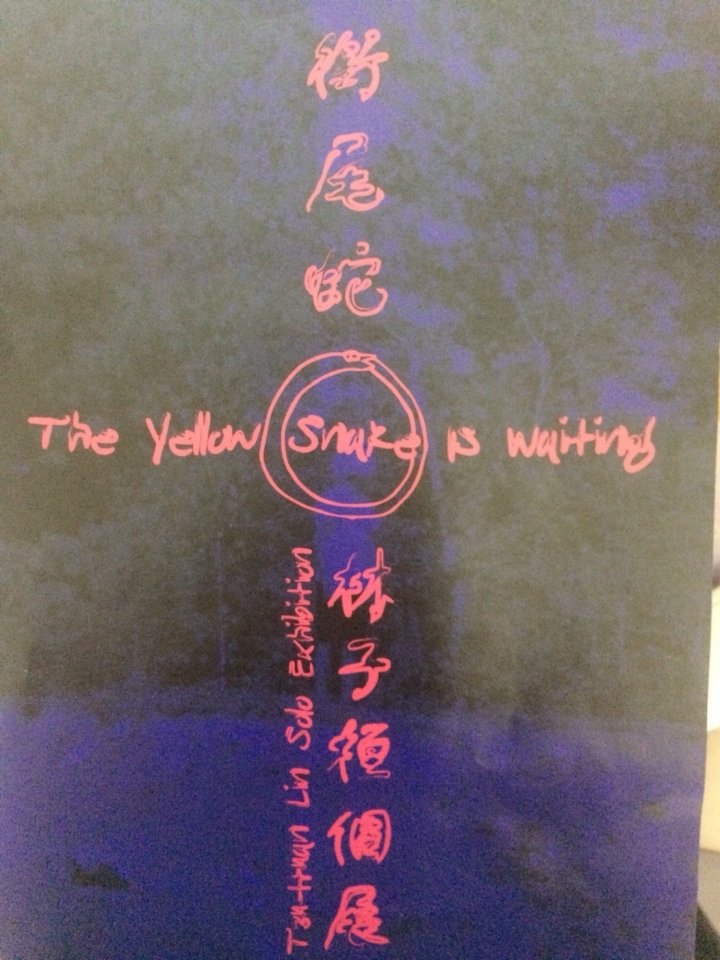 銜尾蛇
The Yellow Snake is waiting
林子桓個展
Tzu-Huan Lin Solo Exhibition